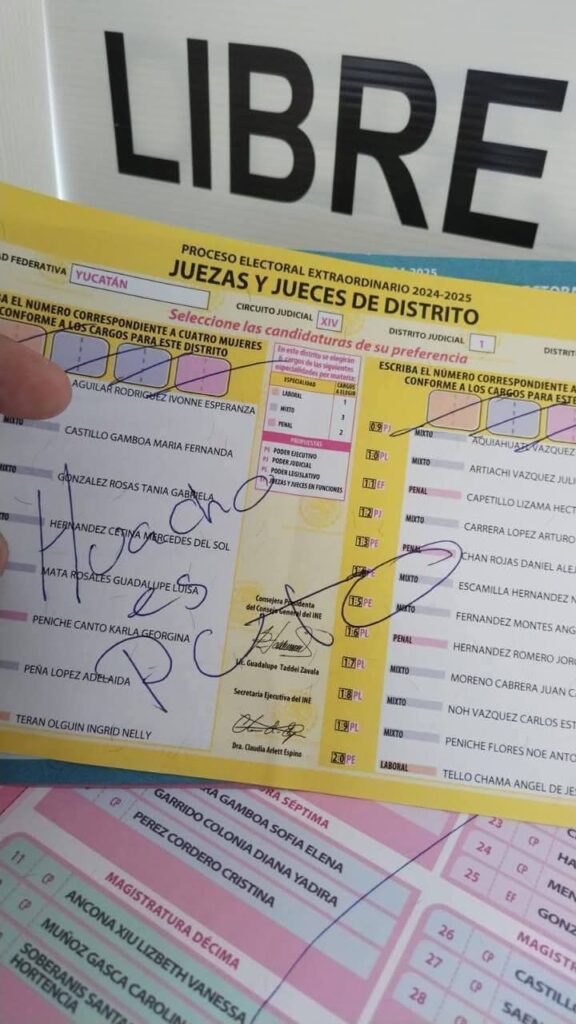 LIBRE
PROCESO ELECTORAL EXTRAORDINARIO 2024-2025
JUEZAS Y JUECES DE DISTRITO
AD FEDERATIVA YUCATÁN
CIRCUITO JUDICIAL XIV
DISTRITO JUDICIAL 1
DISTRIT
Seleccione las candidaturas de su preferencia
BA EL NÚMERO CORRESPONDIENTE A CUATRO MUJERES
CONFORME A LOS CARGOS PARA ESTE DISTRITO
AGUILAR RODRIGUEZ IVONNE ESPERANZA
MIXTO
CASTILLO GAMBOA MARIA FERNANDA
MIXTO
GONZALEZ ROSAS TANIA GABRIELA
HERNANDEZ CETINA MERCEDES DEL SOL
MATA ROSALES GUADALUPE LUISA
PENICHE CANTO KARLA GEORGINA
PEÑA LOPEZ ADELAIDA
TERAN OLGUIN INGRID NELLY
Huacho
es
PUTO
En este distrito se elegirán
cargos de las siguientes
especialidades por materia:
ESPECIALIDAD CARGOS A ELEGIR
LABORAL 1
MIXTO 3
PENAL 2
PROPUESTAS
PE PODER EJECUTIVO
PJ PODER JUDICIAL
PL PODER LEGISLATIVO
EF JUEZAS Y JUECES EN FUNCIONES
Consejera Presidenta
del Consejo General del INE
Lic. Guadalupe Taddei Zavala
Secretaria Ejecutiva del INE
Dra. Claudia Arlett Espino
ESCRIBA EL NÚMERO CORRESPONDIENTE A
CONFORME A LOS CARGOS PARA ESTE
09 PJ MIXTO AQUIAHUATL VAZQUEZ
10 PL MIXTO ARTIACHI VAZQUEZ JULI
11 EF PENAL CAPETILLO LIZAMA HECT
12 PJ MIXTO CARRERA LOPEZ ARTURO
13 PE PENAL CHAN ROJAS DANIEL ALEJ
MIXTO ESCAMILLA HERNANDEZ N
15 PE MIXTO FERNANDEZ MONTES ANG
16 PL PENAL HERNANDEZ ROMERO JOR
17 PL MIXTO MORENO CABRERA JUAN C
18 PL MIXTO NOH VAZQUEZ CARLOS EST
19 PL MIXTO PENICHE FLORES NOE ANTO
20 PE LABORAL TELLO CHAMA ANGEL DE JES
RA SÉPTIMA
RA GAMBOA SOFIA ELENA
GARRIDO COLONIA DIANA YADIRA
CP PEREZ CORDERO CRISTINA
MAGISTRATURA DÉCIMA
11 CP ANCONA XIU LIZBETH VANESSA
CP MUÑOZ GASCA CAROLIN
SOBERANIS SANTA
HORTENCIA
23 CP HA
24 CP MEN
25 EF GONZ
MAGIST
26 CP CASTILL
27 CP SAEN
28 CP